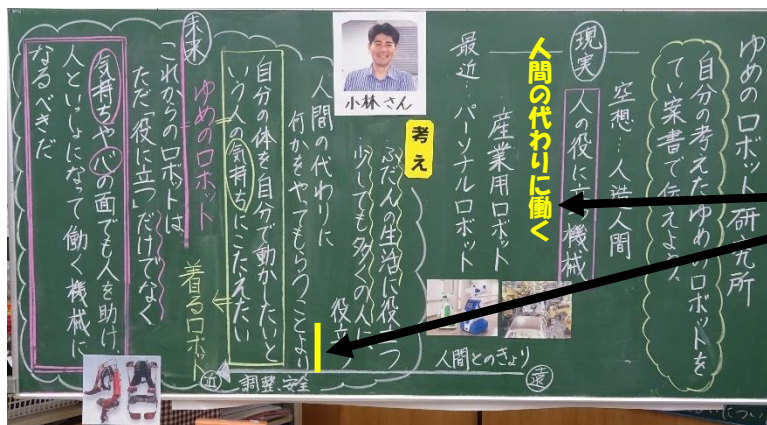 ゆめのロボット研究所
自分の考えたゆめのロボットを
てい案書で伝えよう。
空想…人造人間
現実
人の役に
機械
人間の代わりに働く
産業用ロボット
最近…パーソナルロボット
小林さん
考え
ふだんの生活に役立つ
少しでも多くの人に、
役立
人間の代わりに
何かをやってもらうことより
自分の体を自分で動かしたいと
いう人の気持ちにこたえたい
着るロボット
ゆめのロボット
未来
これからのロボットは、
ただ「役に立つ」だけでなく
気持ちや心の面でも人を助け、
人といっしょになって働く機械に
なるべきだ
人間とのきょり
遠
近
調整・安全